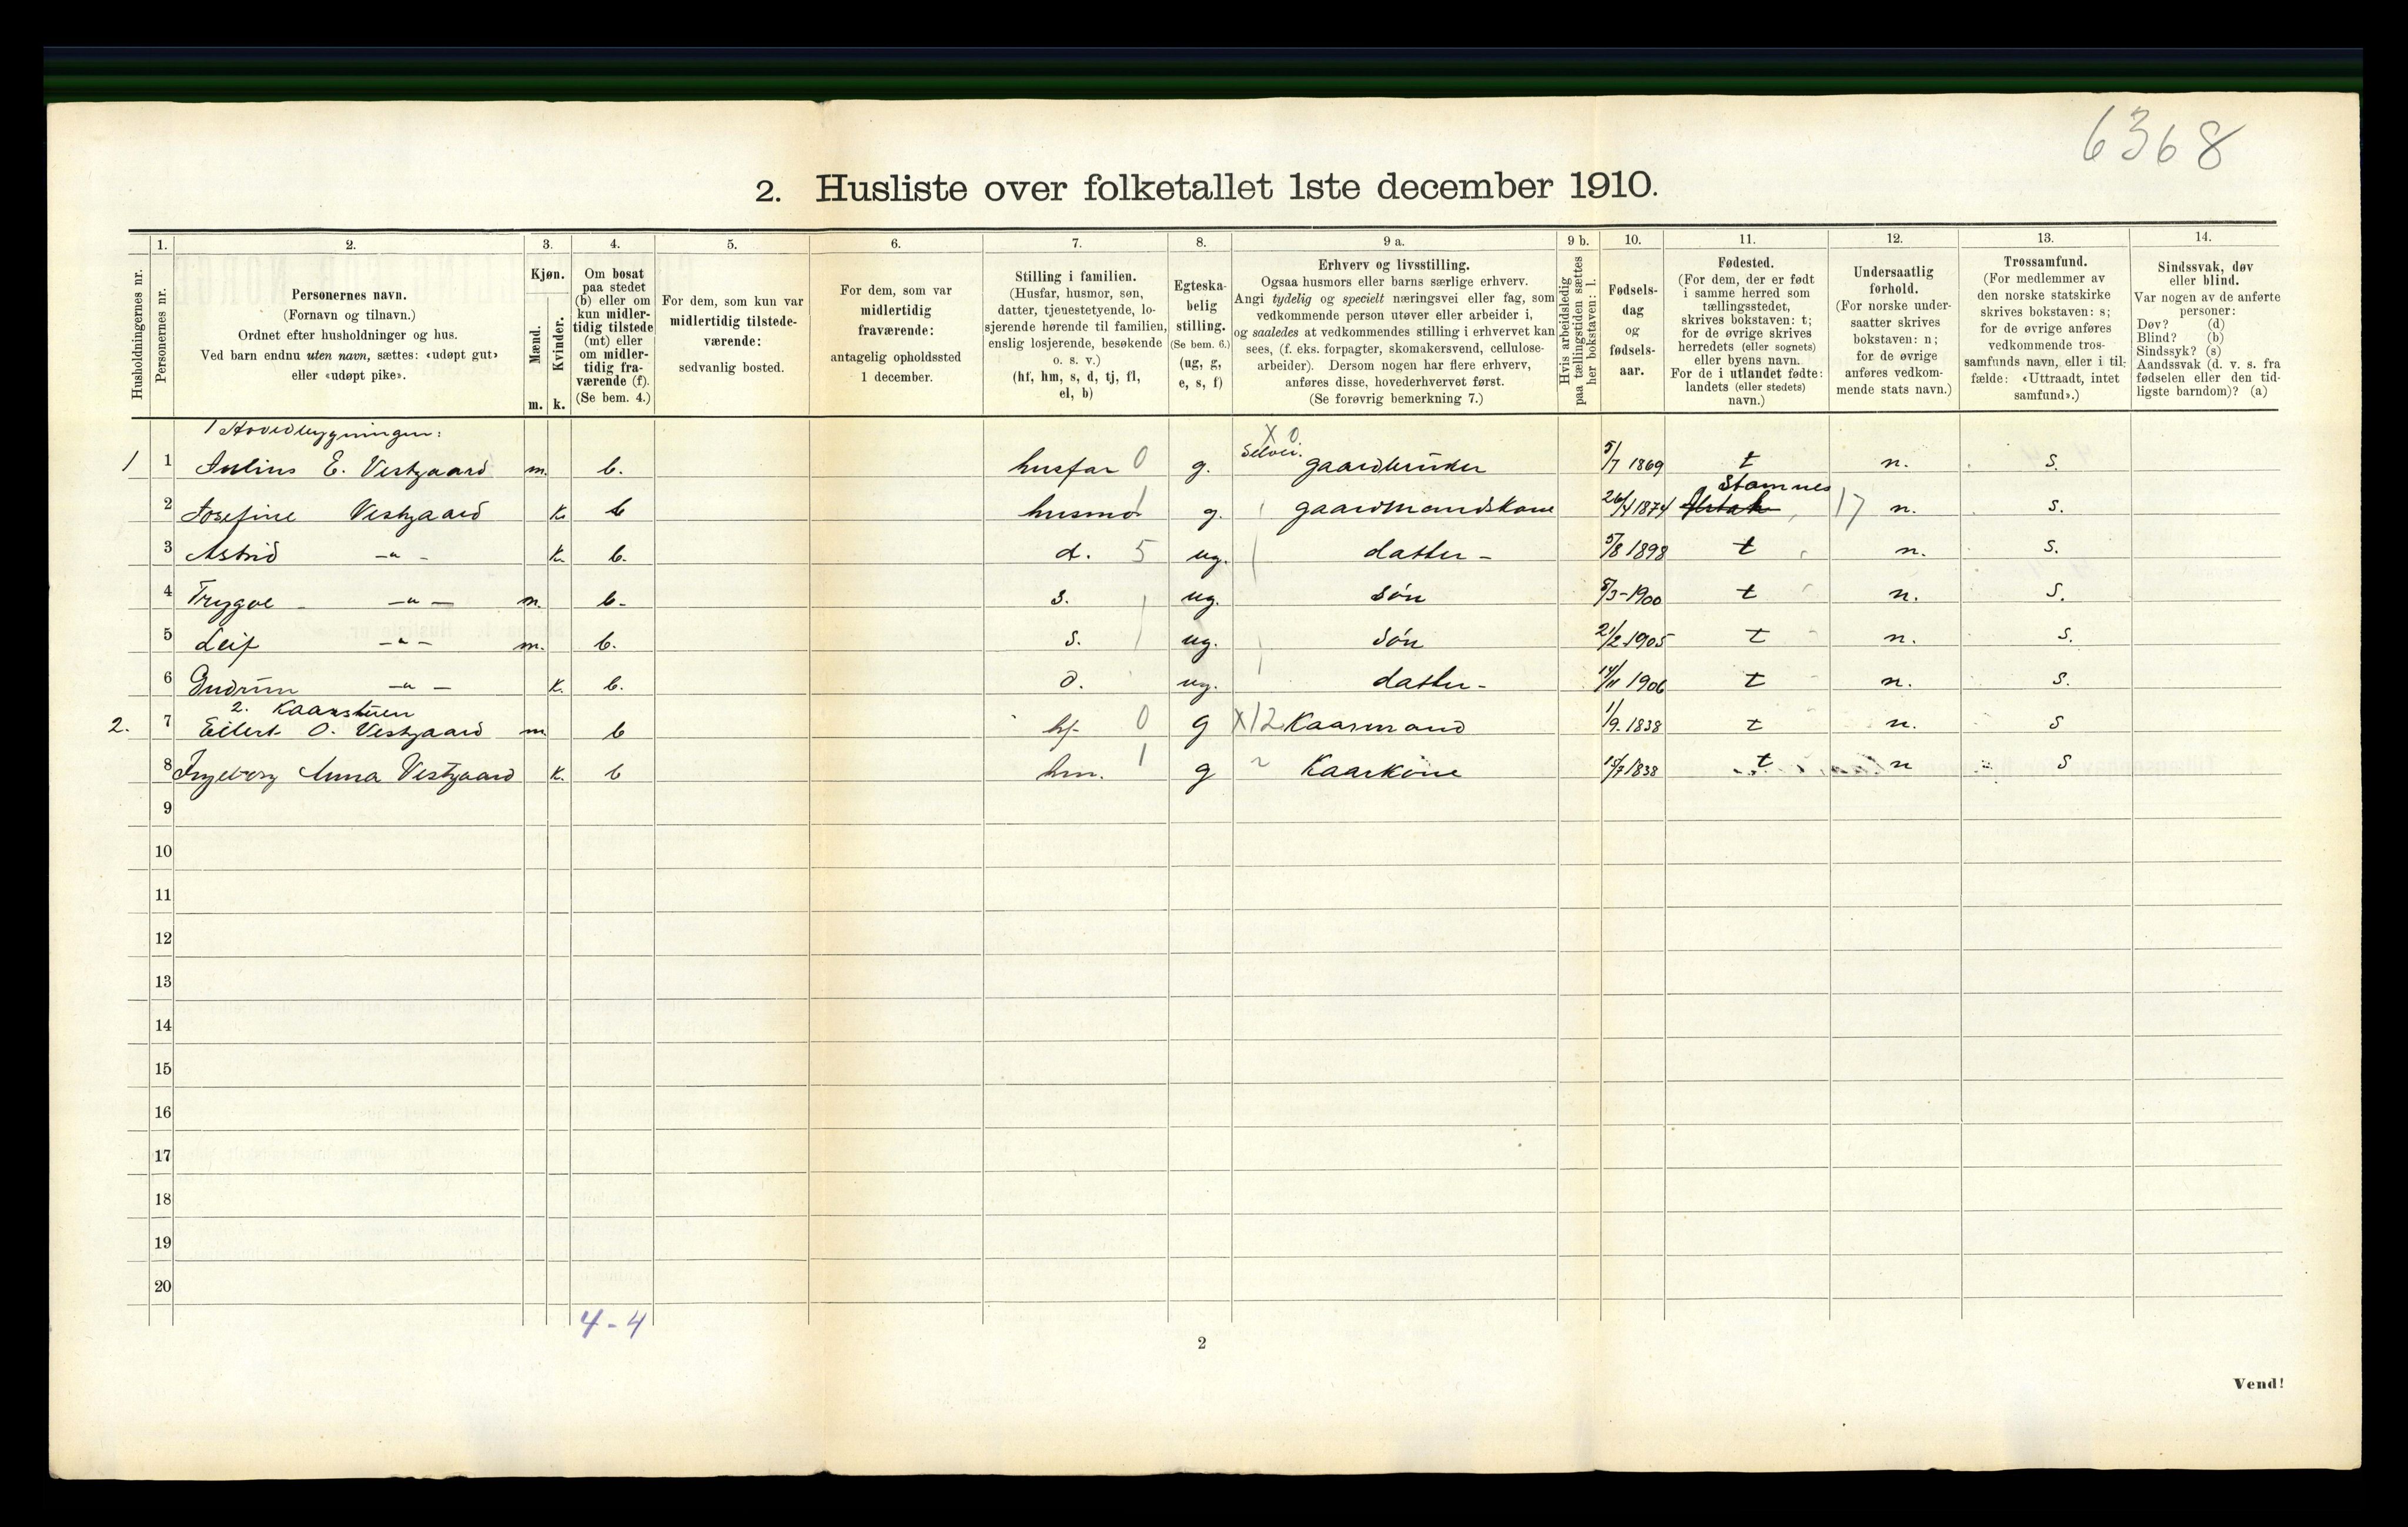 6368
2. Husliste over folketallet 1ste december 1910.
Husholdningernes nr.
1.
Personernes nr.
2.
Personernes navn.
(Fornavn og tilnavn.)
Ordnet efter husholdninger og hus.
Ved barn endnu uten navn, sættes: «udøpt gut»
eller «udøpt pike».
3.
Kjøn.
Mænd.
Kvinder.
m. k.
4.
Om bosat
paa stedet
(b) eller om
kun midler-
tidig tilstede
(mt) eller
om midler-
tidig fra-
værende (f).
(Se bem. 4.)
5.
For dem, som kun var
midlertidig tilstede-
værende:
sedvanlig bosted.
6.
For dem, som var
midlertidig
fraværende:
antagelig opholdssted
1 december.
7.
Stilling i familien.
(Husfar, husmor, søn,
datter, tjenestetyende, lo-
sjerende hørende til familien,
enslig losjerende, besøkende
o. s. v.)
(hf, hm, s, d, tj, fl,
el, b)
8.
Egteska-
belig
stilling.
(Se bem. 6.)
(ug, g,
e, s, f)
9 a.
Erhverv og livsstilling.
Ogsaa husmors eller barns særlige erhverv.
Angi tydelig og specielt næringsvei eller fag, som
vedkommende person utøver eller arbeider i,
og saaledes at vedkommendes stilling i erhvervet kan
sees, (f. eks. forpagter, skomakersvend, cellulose-
arbeider). Dersom nogen har flere erhverv,
anføres disse, hovederhvervet først.
(Se forøvrig bemerkning 7.)
9 b.
Hvis arbeidsledig
paa tællingstiden sættes
her bokstaven: l.
10.
Fødsels-
dag
og
fødsels-
aar.
11.
Fødested.
(For dem, der er født
i samme herred som
tællingsstedet,
skrives bokstaven: t;
for de øvrige skrives
herredets (eller sognets)
eller byens navn.
For de i utlandet fødte:
landets (eller stedets)
navn.)
12.
Undersaatlig
forhold.
(For norske under-
saatter skrives
bokstaven: n;
for de øvrige
anføres vedkom-
mende stats navn.)
13.
Trossamfund.
(For medlemmer av
den norske statskirke
skrives bokstaven: s;
for de øvrige anføres
vedkommende tros-
samfunds navn, eller i til-
fælde: «Uttraadt, intet
samfund».)
14.
Sindssvak, døv
eller blind.
Var nogen av de anførte
personer:
Døv? (d)
Blind? (b)
Sindssyk? (s)
Aandssvak (d. v. s. fra
fødselen eller den tid-
ligste barndom)? (a)
1 Hovedbygningen:
1 1 Julius E. Vestgaard m. b. husfar 0 g. X 0 Selvei. gaardbruker 5/7 1869 t n. s.
2 Josefine Vestgaard k b husmor 1 g. gaardmandskone 26/4 1874 Stamnes 17 n. s.
3 Astrid -"- k. b. d. 5 ug. datter - 5/8 1898 t n. s.
4 Trygve -"- m. b. s. ug. søn 5/3-1900 t n. s.
5 Leif -"- m. b. s. ug. søn 21/2 1905 t n. s.
6 Gudrun -"- k. b. d. ug. datter - 14/11 1906 t n. s.
2. Kaarstuen
2. 7 Eilert O. Vestgaard m b hf. 0 g X12 Kaarmand 1/9. 1838 t n. s
8 Ingeborg Anna Vestgaard k. b hm. 1 g Kaarkone 15/7 1838 t n s
9
10
11
12
13
14
15
16
17
18
19
20
4-4
2
Vend!